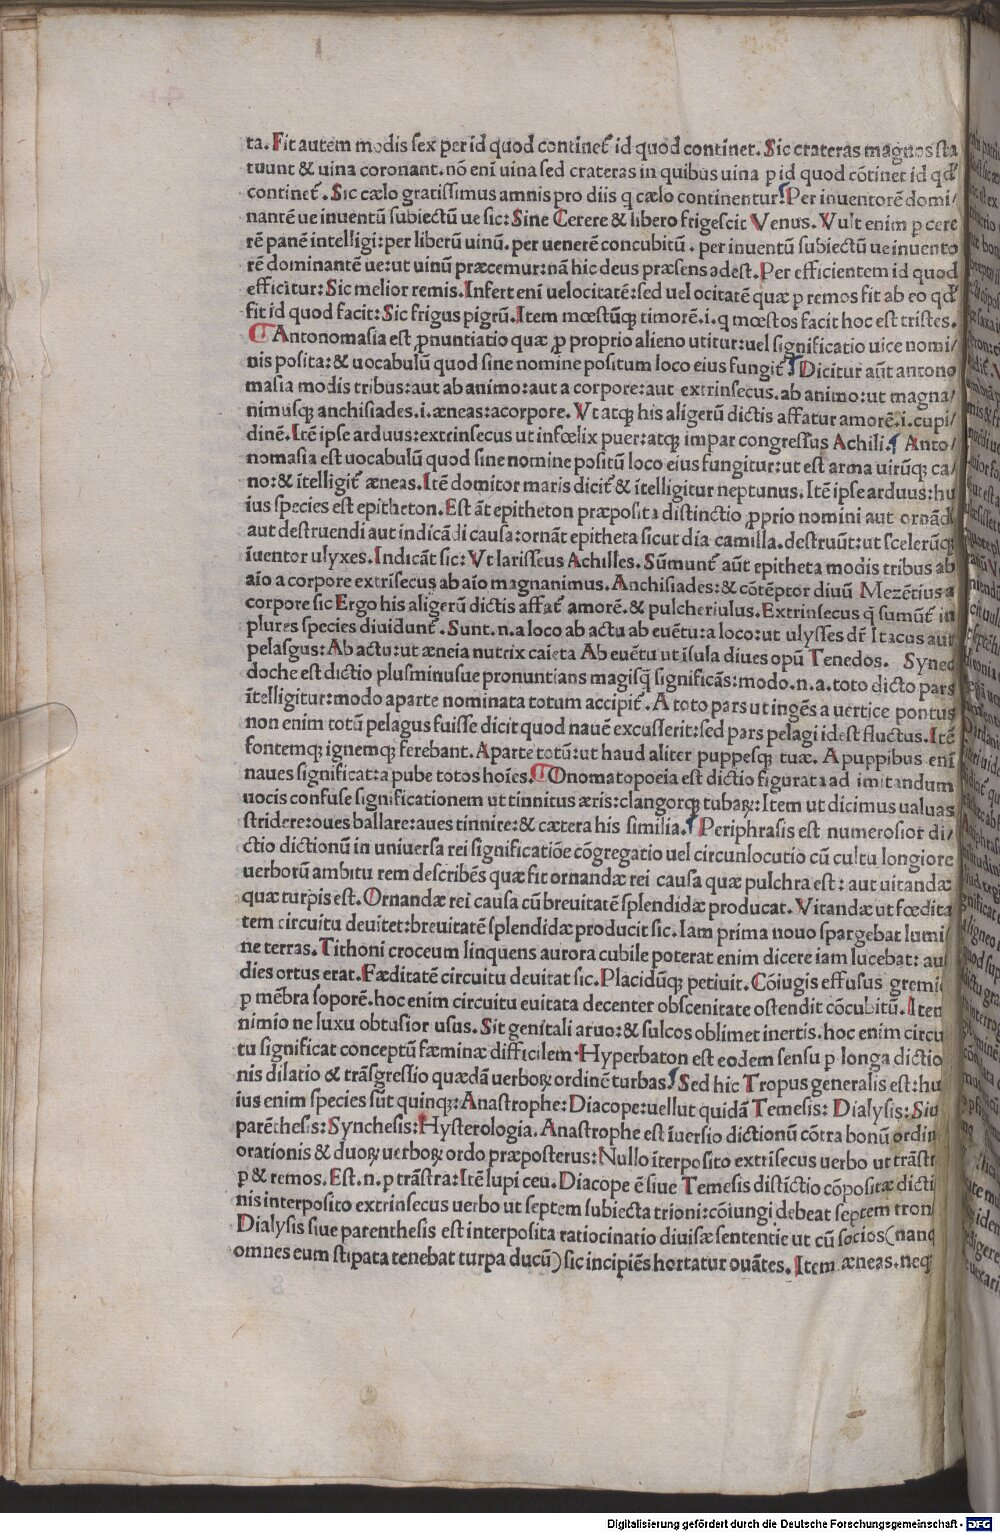 ta. Fit autem modis sex per id quod continet᷑ id quod continet. Sic crateras magnos sta
tuunt & uina coronant. nō eni᷑ uina sed crateras in quibus uina p̱ id quod cōtinet id qd̕
continet᷑. Sic cælo gratissimus amnis pro diis q cælo continentur. Per inuentorē domi/
nantē ue inuentū subiectū ue sic: Sine Cerere & libero frigescit Venus. Vult enim p cere
rē panē intelligi: per liberū uinū. per uenerē concubitū. per inuentū subiectū ue inuento
rē dominantē ue: ut uinū præcemur: nā hic deus præsens adest. Per efficientem id quod
efficitur: Sic melior remis. Infert eni᷑ uelocitatē: sed uelocitatē quæ p remos fit ab eo qd̕
fit id quod facit: Sic frigus pigrū. Item mœstūqꝫ timorē. i. q mœstos facit hoc est tristes.
¶ Antonomasia est ꝓnuntiatio quæ ꝓ proprio alieno utitur: uel significatio uice nomi/
nis posita: & uocabulū quod sine nomine positum loco eius fungit᷑ ¶ Dicitur aūt antono
masia modis tribus: aut ab animo: aut a corpore: aut extrinsecus. ab animo: ut magna/
nimusqꝫ anchisiades. i. æneas: acorpore. Vt atqꝫ his aligerū dictis affatur amorē. i. cupi/
dinē. Itē ipse arduus: extrinsecus ut infœlix puer: atqꝫ impar congressus Achili. ¶ Anto/
nomasia est uocabulū quod sine nomine positū loco eius fungitur: ut est arma uirūqꝫ ca/
no: & ītelligit᷑ æneas. Itē domitor maris dicit᷑ & ītelligitur neptunus. Itē ipse arduus: hu
ius species est epitheton. Est āt epitheton præposita distinctio ꝓprio nomini aut ornādi
aut destruendi aut indicādi causa: ornāt epitheta sicut dia camilla. destruūt: ut scelerūqꝫ
īuentor ulyxes. Indicāt sic: Vt larisseus Achilles. Sūmunt᷑ aūt epitheta modis tribus ab
aīo a corpore extrisecus ab aīo magnanimus. Anchisiades: & cōtēptor diuū Mezētius a
corpore sic Ergo his aligerū dictis affat᷑ amorē. & pulcher iulus. Extrinsecus q̄ sumūt᷑ in
plures species diuidunt᷑. Sunt. n. a loco ab actu ab euētu: a loco: ut ulysses dr̄ Itacus aut
pelasgus: Ab actu: ut æneia nutrix caieta Ab euētu ut īsula diues opū Tenedos. Syned
doche est dictio plus minusue pronuntians magisq̄ significās: modo. n. a. toto dicto pars
ītelligitur: modo aparte nominata totum accipit᷑. A toto pars ut ingēs a uertice pontus
non enim totū pelagus fuisse dicit quod nauē excusserit: sed pars pelagi idest fluctus. Itē
fontemqꝫ ignemqꝫ ferebant. Aparte totū: ut haud aliter puppesqꝫ tuæ. A puppibus eni᷑
naues significat: a pube totos hoīes. ¶ Onomatopoeia est dictio figurata ad imitandum
uocis confuse significationem ut tinnitus æris: clangorqꝫ tubaꝝ: Item ut dicimus ualuas
stridere: oues ballare: aues tinnire: & cætera his similia. ¶ Periphrasis est numerosior di/
ctio dictionū in uniuersa rei significatiōe cōgregatio uel circunlocutio cū cultu longiore
uerborū ambitu rem describēs quæ fit ornandæ rei causa quæ pulchra est: aut uitandæ
quæ turpis est. Ornandæ rei causa cū breuitatē splendidæ producat. Vitandæ ut fœdita
tem circuitu deuitet: breuitatē splendidæ producit sic. Iam prima nouo spargebat lumi/
ne terras. Tithoni croceum linquens aurora cubile poterat enim dicere iam lucebat: au
dies ortus erat. Fæditatē circuitu deuitat sic. Placidūqꝫ petiuit. Cōiugis effusus gremi
p̱ mēbra soporē. hoc enim circuitu euitata decenter obscenitate ostendit cōcubitū. Iten
nimio ne luxu obtusior usus. Sit genitali aruo: & sulcos oblimet inertis. hoc enim circu
tu significat conceptū fæminæ difficilem. Hyperbaton est eodem sensu p longa dictio
nis dilatio & trāsgressio quædā uerboꝝ ordinē turbas. ¶ Sed hic Tropus generalis est: hu
ius enim species sūt quinqꝫ: Anastrophe: Diacope: uellut quidā Temesis: Dialysis: Siu
parēthesis: Synchesis: Hysterologia. Anastrophe est īuersio dictionū cōtra bonū ordin
orationis & duoꝝ uerboꝝ ordo præposterus: Nullo īterposito extrisecus uerbo ut trāstr
p̱ & remos. Est. n. p trāstra: Itē lupi ceu. Diacope ē siue Temesis distictio cōpositæ dicti
nis interposito extrinsecus uerbo ut septem subiecta trioni: cōiungi debeat septem tron
Dialysis siue parenthesis est interposita ratiocinatio diuisæ sententie ut cū socios (nanq
omnes eum stipata tenebat turpa ducū) sic incipiēs hortatur ouātes. Item æneas. neqꝫ
Digitalisierung gefördert durch die Deutsche Forschungsgemeinschaft - DFG